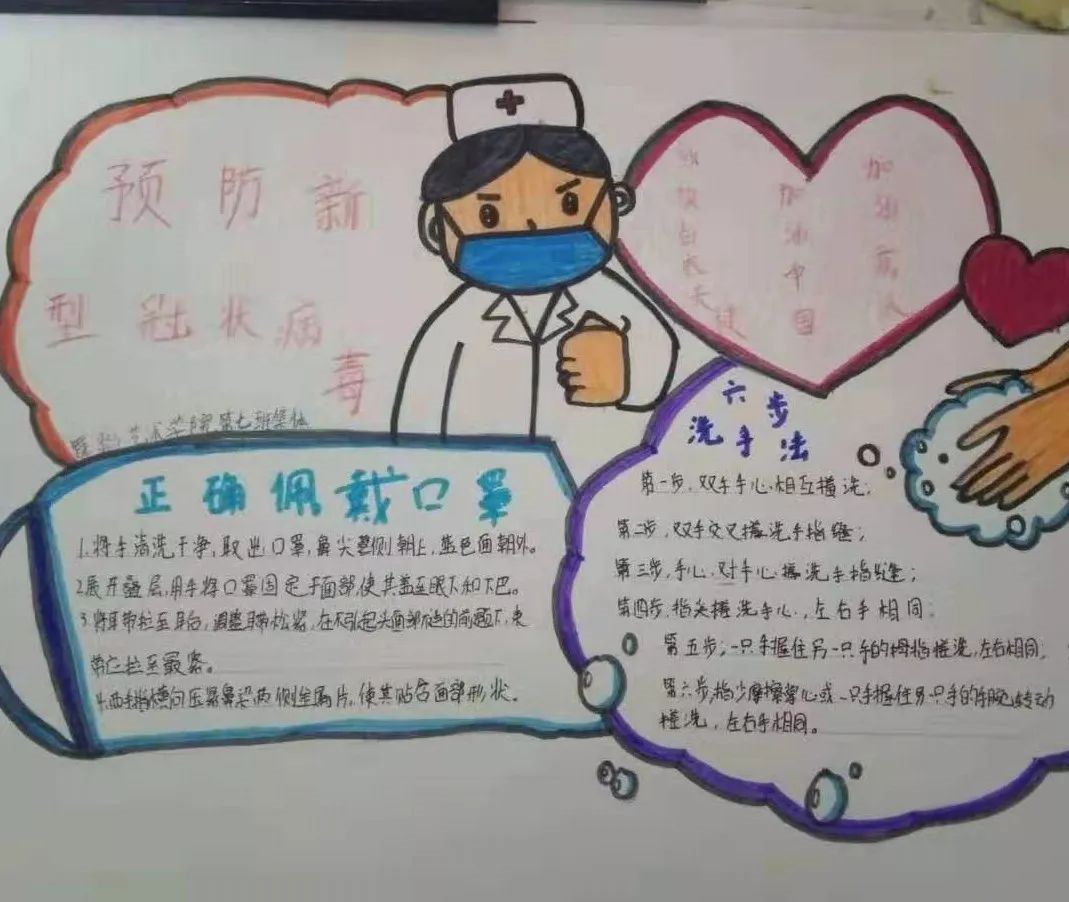 预防新
型冠状病
毒
艺术学院第七班集体
致敬白衣天使
加油中国
加油
正确佩戴口罩
1.将手清洗干净,取出口罩,鼻尖侧朝上,蓝色面朝外。
2.展开叠层,用手将口罩固定于面部,使其盖至眼下和下巴。
3.将耳带拉至耳后,调整耳带松紧,在不引起头面部不适的前题下,
拉至最紧。
4.两手指横向压紧鼻梁两侧金属片,使其贴合面部形状。
六步
洗手法
第一步,双手手心相互搓洗;
第二步,双手交叉搓洗手指缝;
第三步,手心对手心搓洗手指缝;
第四步,指尖搓洗手心,左右手相同;
第五步;一只手握住另一只手的拇指搓洗,左右相同;
第六步,指尖摩擦掌心或一只手握住另一只手的手腕转动
搓洗,左右手相同。